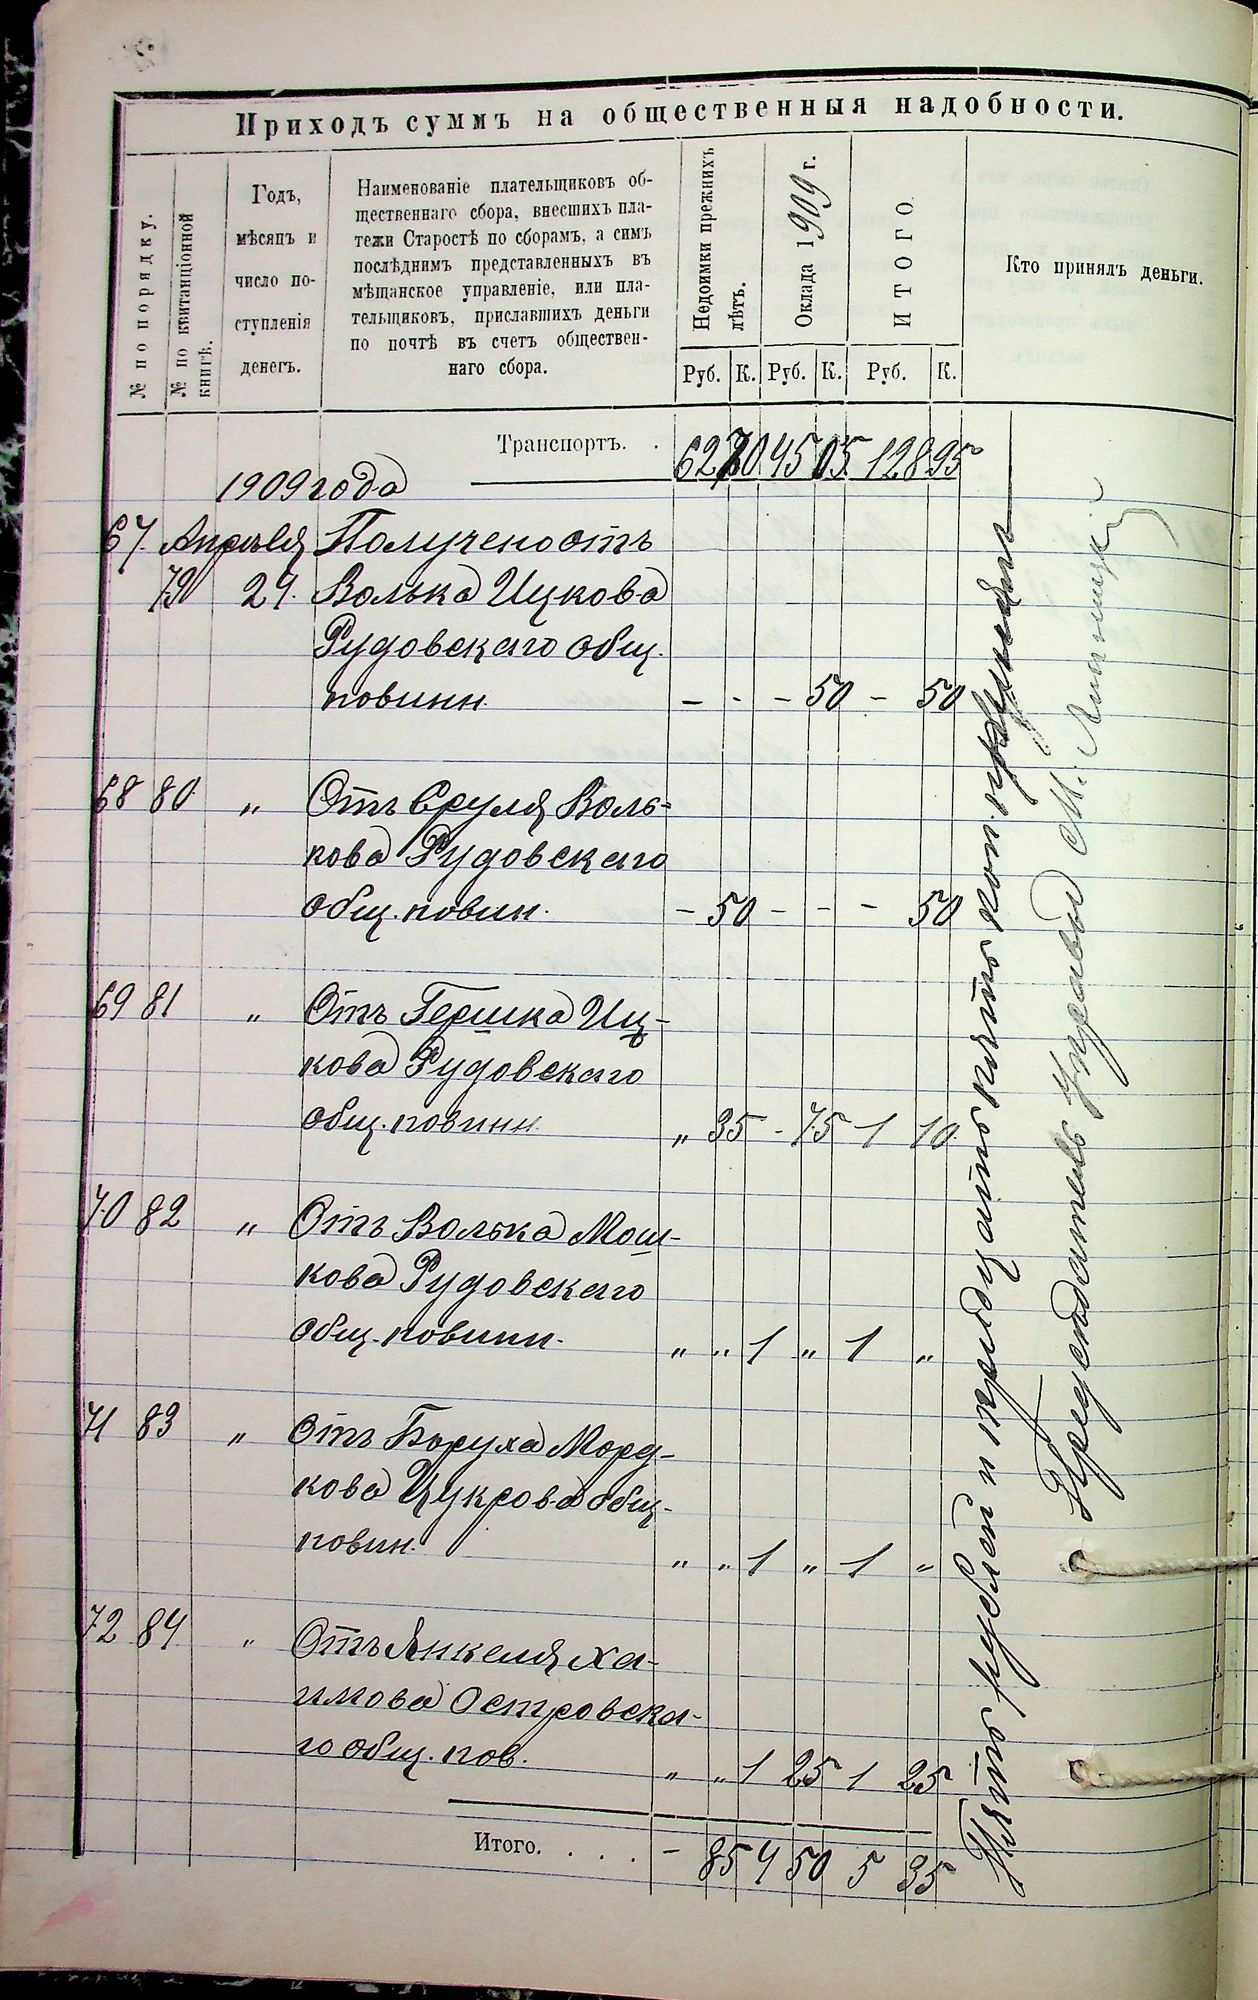 Приходъ суммъ на общественныя надобности.
№ по порядку.
№ по квитанціонной
книгѣ.
Годъ,
мѣсяцъ и
число по-
ступленія
денегъ.
Наименованіе плательщиковъ об-
щественнаго сбора, внесшихъ пла-
тежи Старостѣ по сборамъ, а симъ
послѣднимъ представленныхъ въ
мѣщанское управленіе, или пла-
тельщиковъ, приславшихъ деньги
по почтѣ въ счетъ обществен-
наго сбора.
Недоимки прежнихъ
лѣтъ.
Оклада 1909 г.
ИТОГО.
Кто принялъ деньги.
Руб. К. Руб. К. Руб. К.
Транспортъ. . 45 05 128 95
1909 года
67. Апрѣля Получено отъ
79 29. Волька Ицкова
Рудовскаго общ.
повинн. – - – 50 – 50
68 80 „ Отъ Сруля Воль-
кова Рудовскаго
общ. повин. – 50 – - – 50
69 81 „ Отъ Гершка Иц-
кова Рудовскаго
общ. повинн. „ 35 - 75 1 10
70 82 „ Отъ Волька Мош-
кова Рудовскаго
общ. повинн. „ „ 1 „ 1 „
71 83 „ Отъ Боруха Морд-
кова Цукрова общ.
повин. „ „ 1 „ 1 „
72 84 „ Отъ Янкеля Ха-
имова Островска-
го общ. пов. „ „ 1 25 1 25
Итого. . . . . – 85 4 50 5 35
Пять рублей и тридцать пять коп. принялъ
Предсѣдатель Управы М.